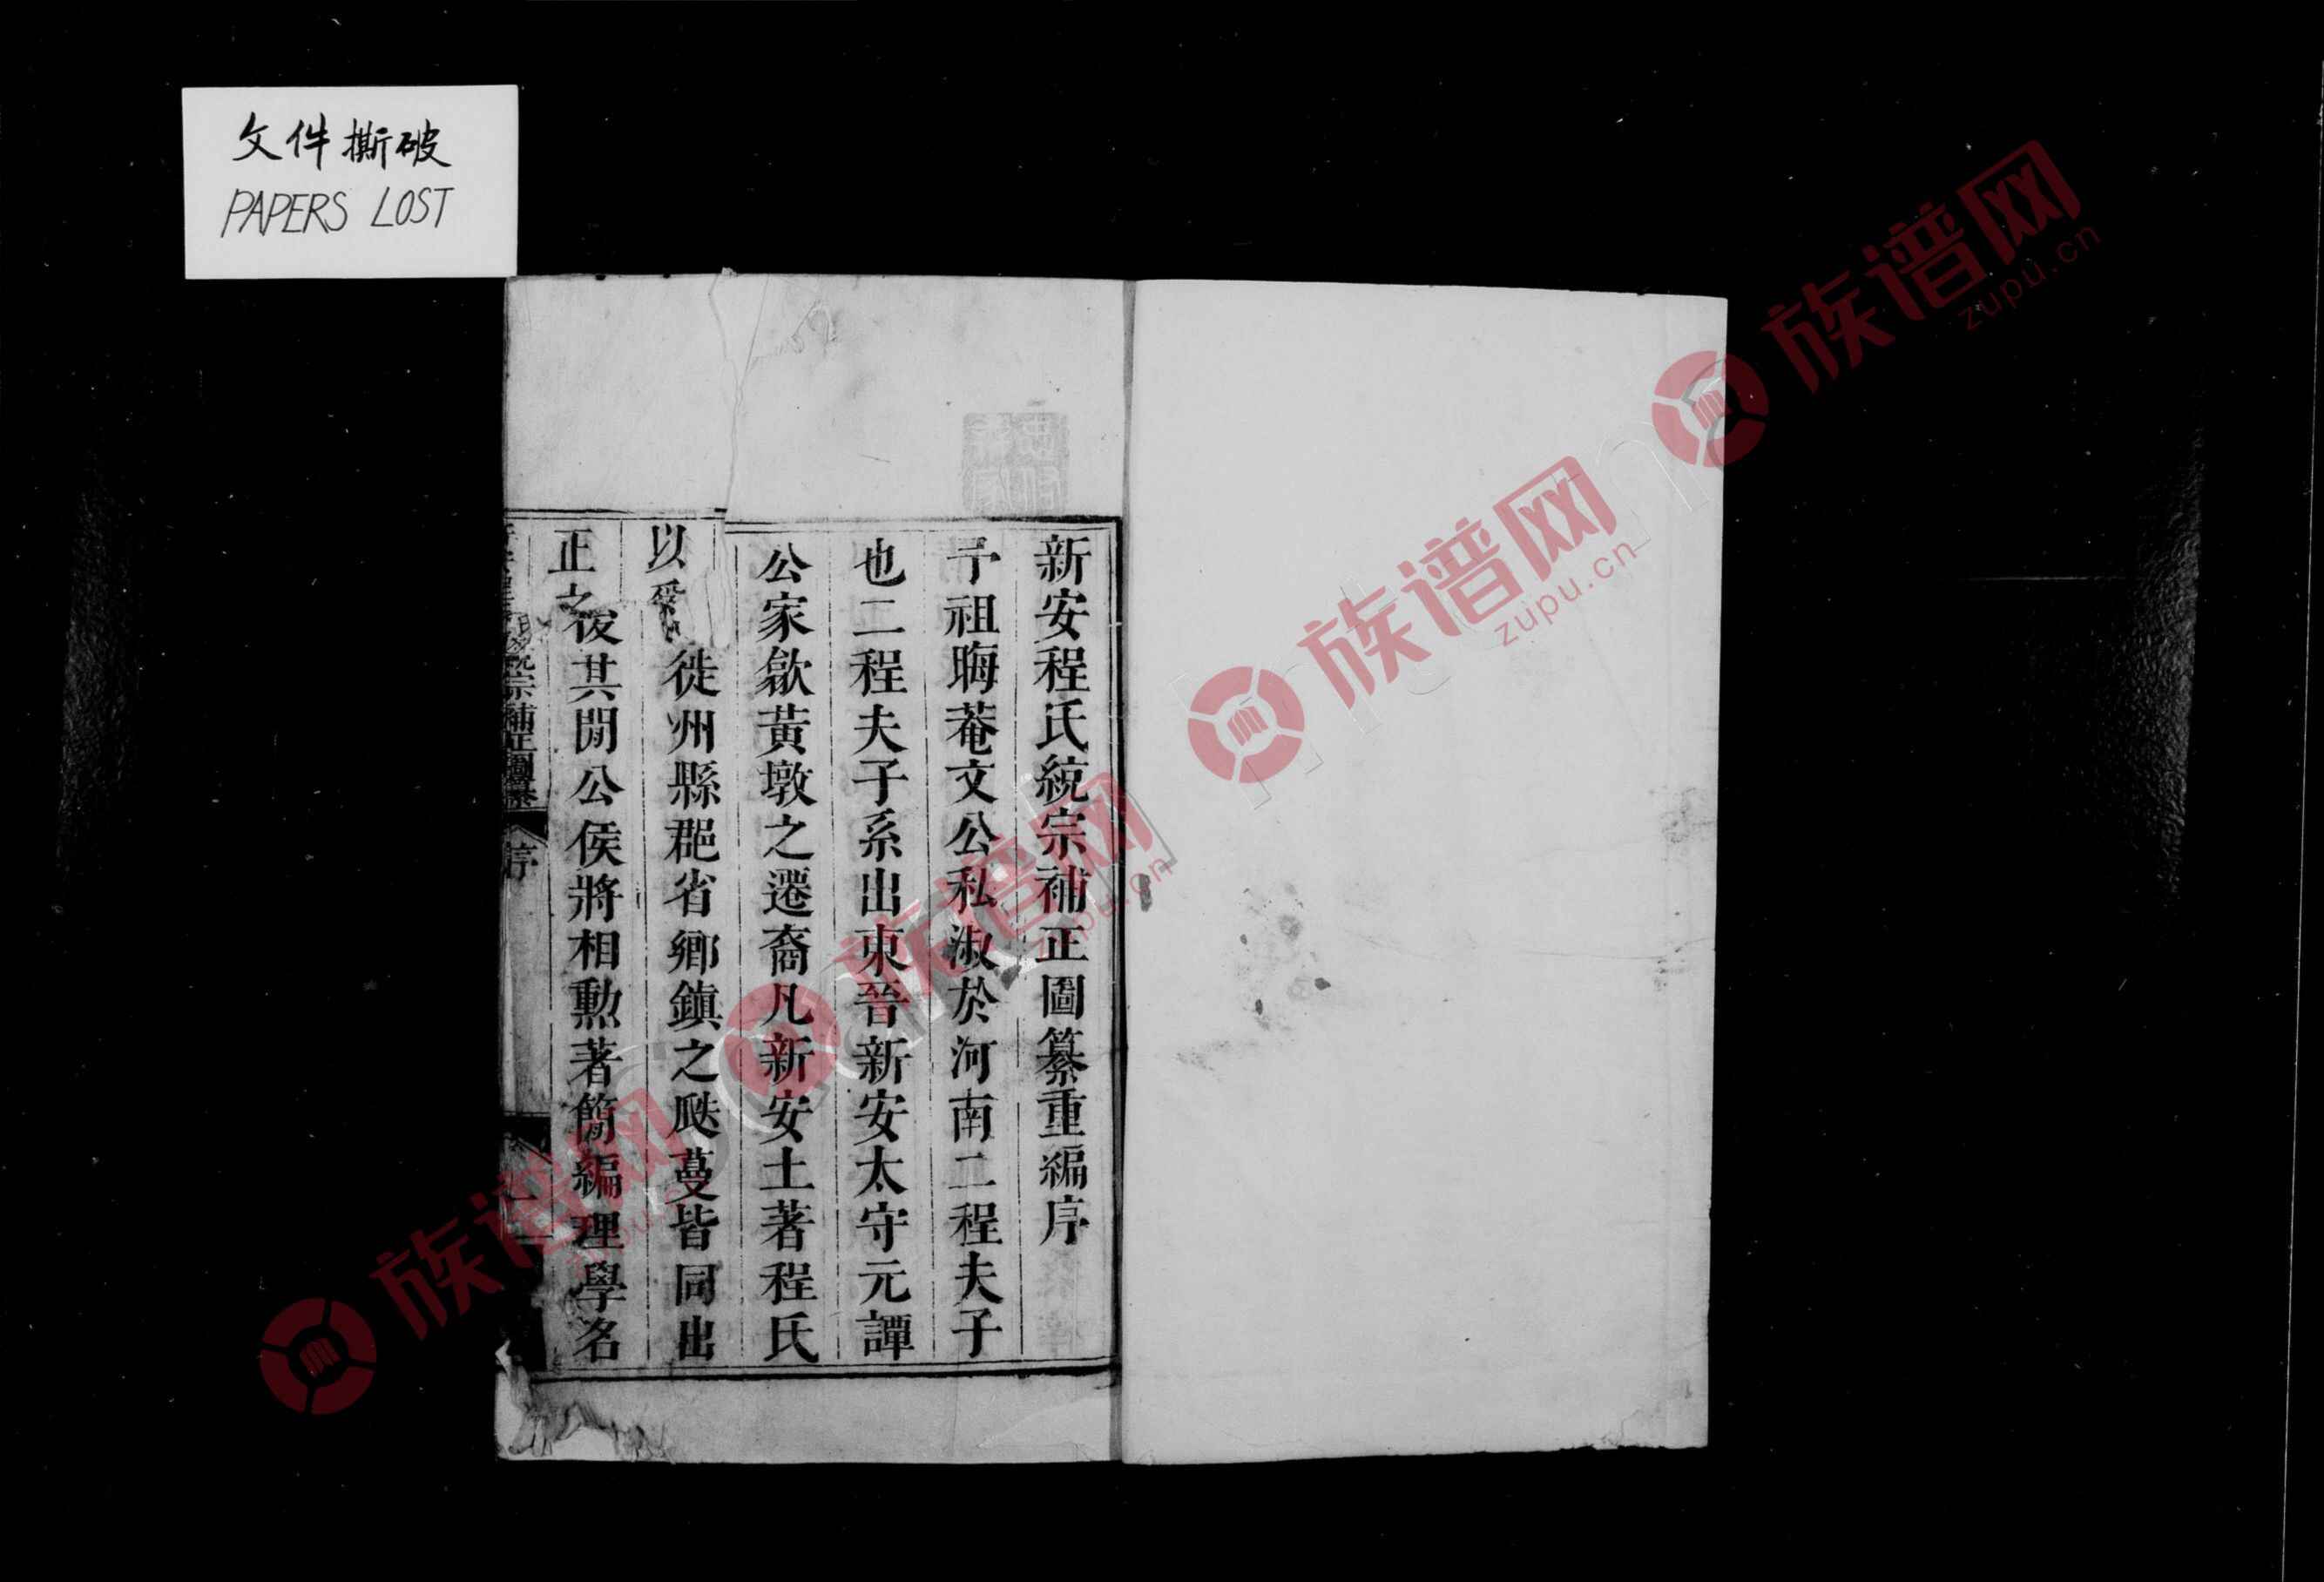 文件撕破
PAPERS LOST
新安程氏統宗補正圖纂重編序
予祖晦菴文公私淑於河南二程夫子
也二程夫子系出東晉新安太守元譚
公家歙黃墩之遷裔凡新安土著程氏
以 徙州縣郡省鄉鎮之瓞蔓皆同出
正之後其閒公侯將相勲著簡編理學名
宗補正圖纂
序
一
族谱网
zupu.cn
族谱网
zupu.cn
族谱网
zupu.cn
族谱网